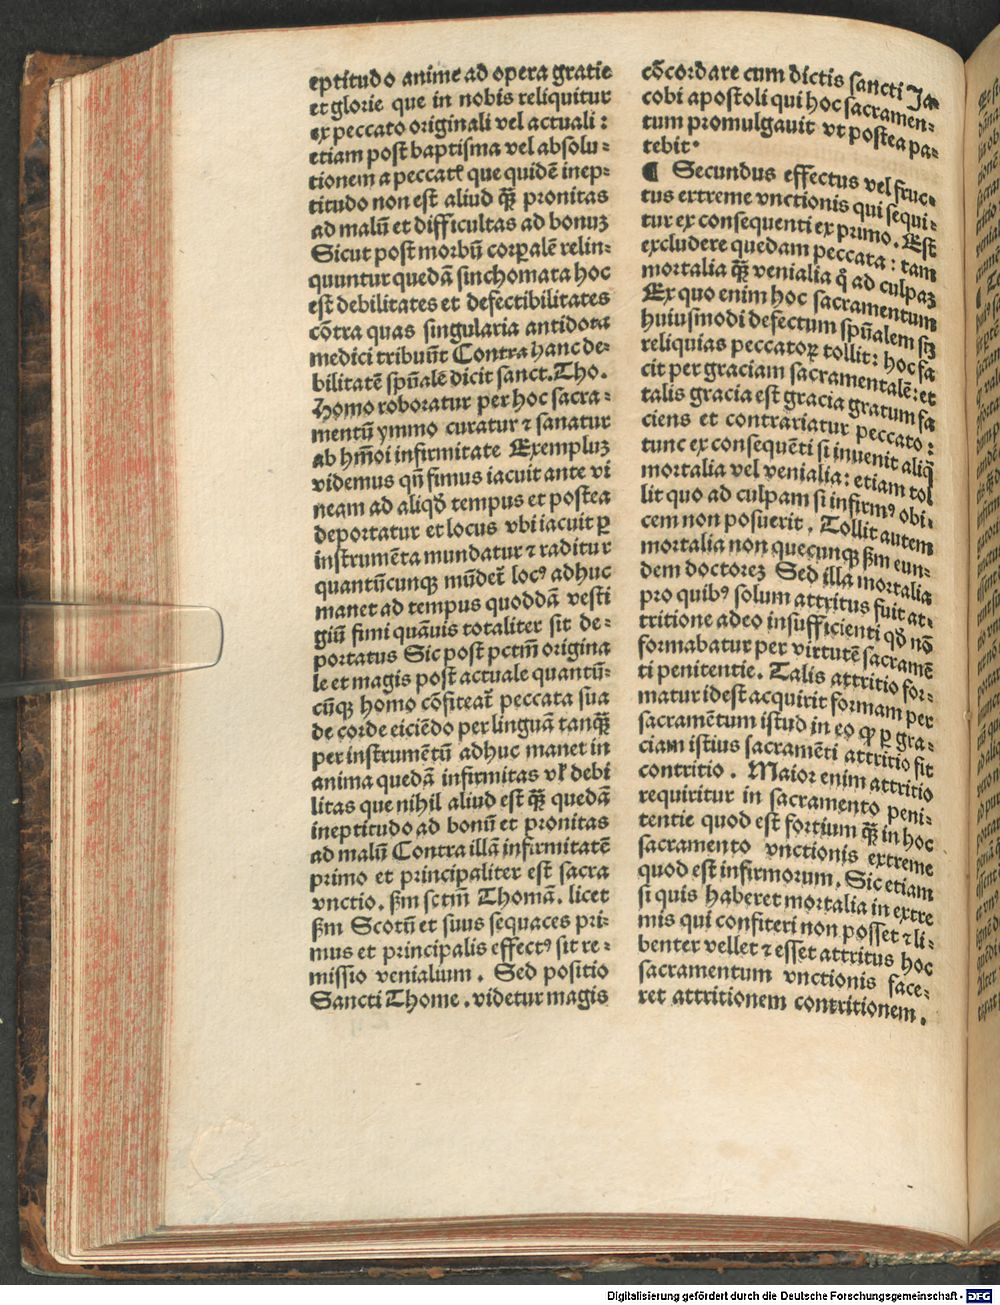 eptitudo anime ad opera gratie
et glorie que in nobis reliquitur
ex peccato originali vel actuali :
etiam post baptisma vel absolu⸗
tionem a peccatꝭ que quidē inep⸗
titudo non est aliud q̄ꝫ pronitas
ad malū et difficultas ad bonuꝫ
Sicut post morbū corꝑalē relin⸗
quuntur quedā sinchomata hoc
est debilitates et defectibilitates
cōtra quas singularia antidota
medici tribuūt Contra hanc de⸗
bilitatē spūalē dicit sanct. Tho.
Homo roboratur per hoc sacra⸗
mentū ymmo curatur ⁊ sanatur
ab hm̄oi infirmitate Exempluꝫ
videmus qn̄ fimus iacuit ante vi
neam ad aliqd̄ tempus et postea
deportatur et locus vbi iacuit ꝑ
instrumēta mundatur ⁊ raditur
quantūcunqꝫ mūdet᷑ locꝰ adhuc
manet ad tempus quoddā vesti
giū fimi quāuis totaliter sit de⸗
portatus Sic post pctm̄ origina
le et magis post actuale quantū⸗
cūqꝫ homo cōfiteat᷑ peccata sua
de corde eiciēdo per linguā tanq̄ꝫ
per instrumētū adhuc manet in
anima quedā infirmitas vl̓ debi
litas que nihil aliud est q̄ꝫ quedā
ineptitudo ad bonū et pronitas
ad malū Contra illā infirmitatē
primo et principaliter est sacra
vnctio. ẜm sctm̄ Thomā. licet
ẜm Scotū et suus sequaces pri⸗
mus et principalis effectꝰ sit re⸗
missio venialium. Sed positio
Sancti Thome. videtur magis
cōcordare cum dictis sancti Ja⸗
cobi apostoli qui hoc sacramen⸗
tum promulgauit vt postea pa⸗
tebit.
¶ Secundus effectus vel fruc⸗
tus extreme vnctionis qui sequi⸗
tur ex consequenti ex primo. Est
excludere quedam peccata : tam
mortalia q̄ꝫ venialia qͦ ad culpaꝫ
Ex quo enim hoc sacramentum
huiusmodi defectum spūalem scꝫ
reliquias peccatoꝝ tollit: hoc fa
cit per graciam sacramentalē: et
talis gracia est gracia gratum fa
ciens et contrariatur peccato :
tunc ex consequēti si inuenit aliq̄
mortalia vel venialia: etiam tol
lit quo ad culpam si infirmꝰ obi⸗
cem non posuerit. Tollit autem
mortalia non quecunqꝫ ẜm eun⸗
dem doctoreꝫ Sed illa mortalia
pro quibꝰ solum attritus fuit at⸗
tritione adeo insufficienti qd̄ nō
formabatur per virtutē sacramē
ti penitentie. Talis attritio for⸗
matur idest acquirit formam per
sacramētum istud in eo ꝙ ꝑ gra⸗
ciam istius sacramēti attritio fit
contritio. Maior enim attritio
requiritur in sacramento peni⸗
tentie quod est fortium q̄ꝫ in hoc
sacramento vnctionis extreme
quod est infirmorum. Sic etiam
si quis haberet mortalia in extre
mis qui confiteri non posset ⁊ li⸗
benter vellet ⁊ esset attritus hoc
sacramentum vnctionis face⸗
ret attritionem contritionem.
Digitalisierung gefördert durch die Deutsche Forschungsgemeinschaft - DFG